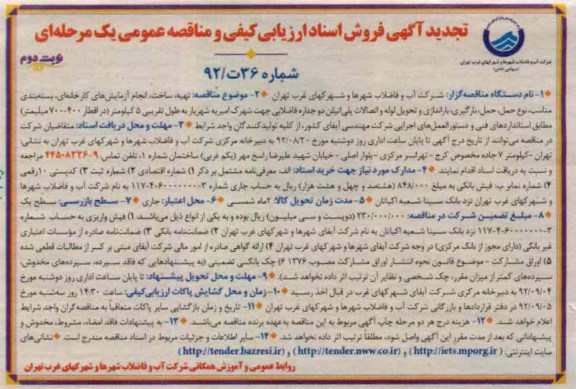 تجدید آگهی فروش اسناد ارزیابی کیفی و مناقصه عمومی یک مرحله‌ای
شرکت آب و فاضلاب شهرها و شهرکهای غرب تهران
نوبت دوم
شماره ۳۶ت/۹۲
۱- نام دستگاه مناقصه‌گزار: شرکت آب و فاضلاب شهرها و شهرکهای غرب تهران ۲- موضوع مناقصه: تهیه، ساخت، انجام آزمایش‌های کارخانه‌ای، بسته‌بندی
مناسب، نوع حمل، حمل، بارگیری، باراندازی و تحویل لوله و اتصالات پلی‌اتیلن دو جداره فاضلابی جهت شهرک امیریه شهریار به طول تقریبی ۵ کیلومتر (در اقطار ۴۰۰-۷۰۰ میلیمتر)
مطابق استانداردهای فنی و دستورالعمل‌های اجرایی شرکت مهندسی آبفای کشور، از کلیه تولیدکنندگان واجد شرایط ۳- مهلت و محل دریافت اسناد: متقاضیان شرکت
در مناقصه می‌توانند از تاریخ درج آگهی تا پایان ساعت اداری روز دوشنبه مورخ ۹۲/۰۸/۲۰ به دبیرخانه مرکزی شرکت آب و فاضلاب شهرها و شهرکهای غرب تهران به نشانی:
تهران - کیلومتر ۷ جاده مخصوص کرج - تهرانسر مرکزی - بلوار اصلی - خیابان شهید علیرضا راسخ مهر (یکم غربی) ساختمان شماره ۱، تلفن تماس ۹-۴۴۵۰۸۳۳۶ مراجعه
و نسبت به دریافت اسناد اقدام نمایند. ۴- مدارک مورد نیاز جهت خرید اسناد: الف: معرفی‌نامه مشتمل بر ذکر ۱) شماره اقتصادی ۲) شماره ثبت ۳) کدپستی ۱۰ رقمی
۴) شماره نمابر ب: فیش بانکی به مبلغ ۸۴۸/۰۰۰ (هشتصد و چهل و هشت هزار) ریال به حساب جاری شماره به نام شرکت آب و فاضلاب شهرها
و شهرکهای غرب تهران نزد بانک سینا شعبه اکباتان ۵- مدت زمان تحویل کالا: ۲ ماه شمسی ۶- محل اعتبار: جاری ۷- سطح بازرسی: سطح یک
۸- مبلغ تضمین شرکت در مناقصه: ۲۳۰/۰۰۰/۰۰۰ (دویست و سی میلیون) ریال بوده و به یکی از انواع ذیل می‌باشد: ۱) فیش واریزی به حساب شماره
نزد بانک سینا شعبه اکباتان به نام شرکت آبفای شهرها و شهرکهای غرب تهران ۲) ضمانت‌نامه بانکی ۳) ضمانت‌نامه صادره از مؤسسات اعتباری
غیر بانکی (دارای مجوز از بانک مرکزی) در وجه شرکت آبفای شهرها و شهرکهای غرب تهران ۴) ارائه گواهی صادره از امور مالی شرکت آبفای مبنی بر کسر از مطالبات قطعی شده
۵) اوراق مشارکت - موضوع قانون نحوه انتشار اوراق مشارکت مصوب ۱۳۷۶ ۶) چک بانکی تضمینی (به پیشنهادهایی که فاقد سپرده، سپرده‌های مخدوش،
سپرده‌های کمتر از میزان مقرر، چک شخصی و نظایر آن ترتیب اثر داده نخواهد شد). ۹- مهلت و محل تحویل پیشنهاد: تا پایان ساعت اداری روز دوشنبه مورخ
۹۲/۰۹/۰۴ به دبیرخانه مرکزی شرکت آبفای شهرکهای غرب در قبال اخذ رسید ۱۰- زمان و محل گشایش پاکات ارزیابی کیفی: ساعت ۱۴:۳۰ روز سه‌شنبه مورخ
۹۲/۰۹/۰۵ در دفتر قراردادها و بازرگانی شرکت آب و فاضلاب شهرها و شهرکهای غرب تهران ۱۱- تاریخ و زمان بازگشایی سایر پاکات متعاقباً به مناقصه‌گران واجد شرایط
اعلام خواهد شد. ۱۲- هزینه درج هر دو مرحله چاپ آگهی مربوط به این مناقصه به عهده برنده مناقصه می‌باشد ۱۳- به پیشنهادات فاقد امضاء، مشروط، مخدوش و
پیشنهاداتی که بعد از مدت مقرر این آگهی واصل شود، مطلقاً ترتیب اثر داده نخواهد شد. ۱۴- سایر اطلاعات و جزئیات مربوط در اسناد مناقصه مندرج است نشانی‌های
سایت اینترنتی: (http://iets.mporg.ir) و (http://tender.nww.co.ir) و (http://tender.bazresi.ir)
روابط عمومی و آموزش همگانی شرکت آب و فاضلاب شهرها و شهرکهای غرب تهران